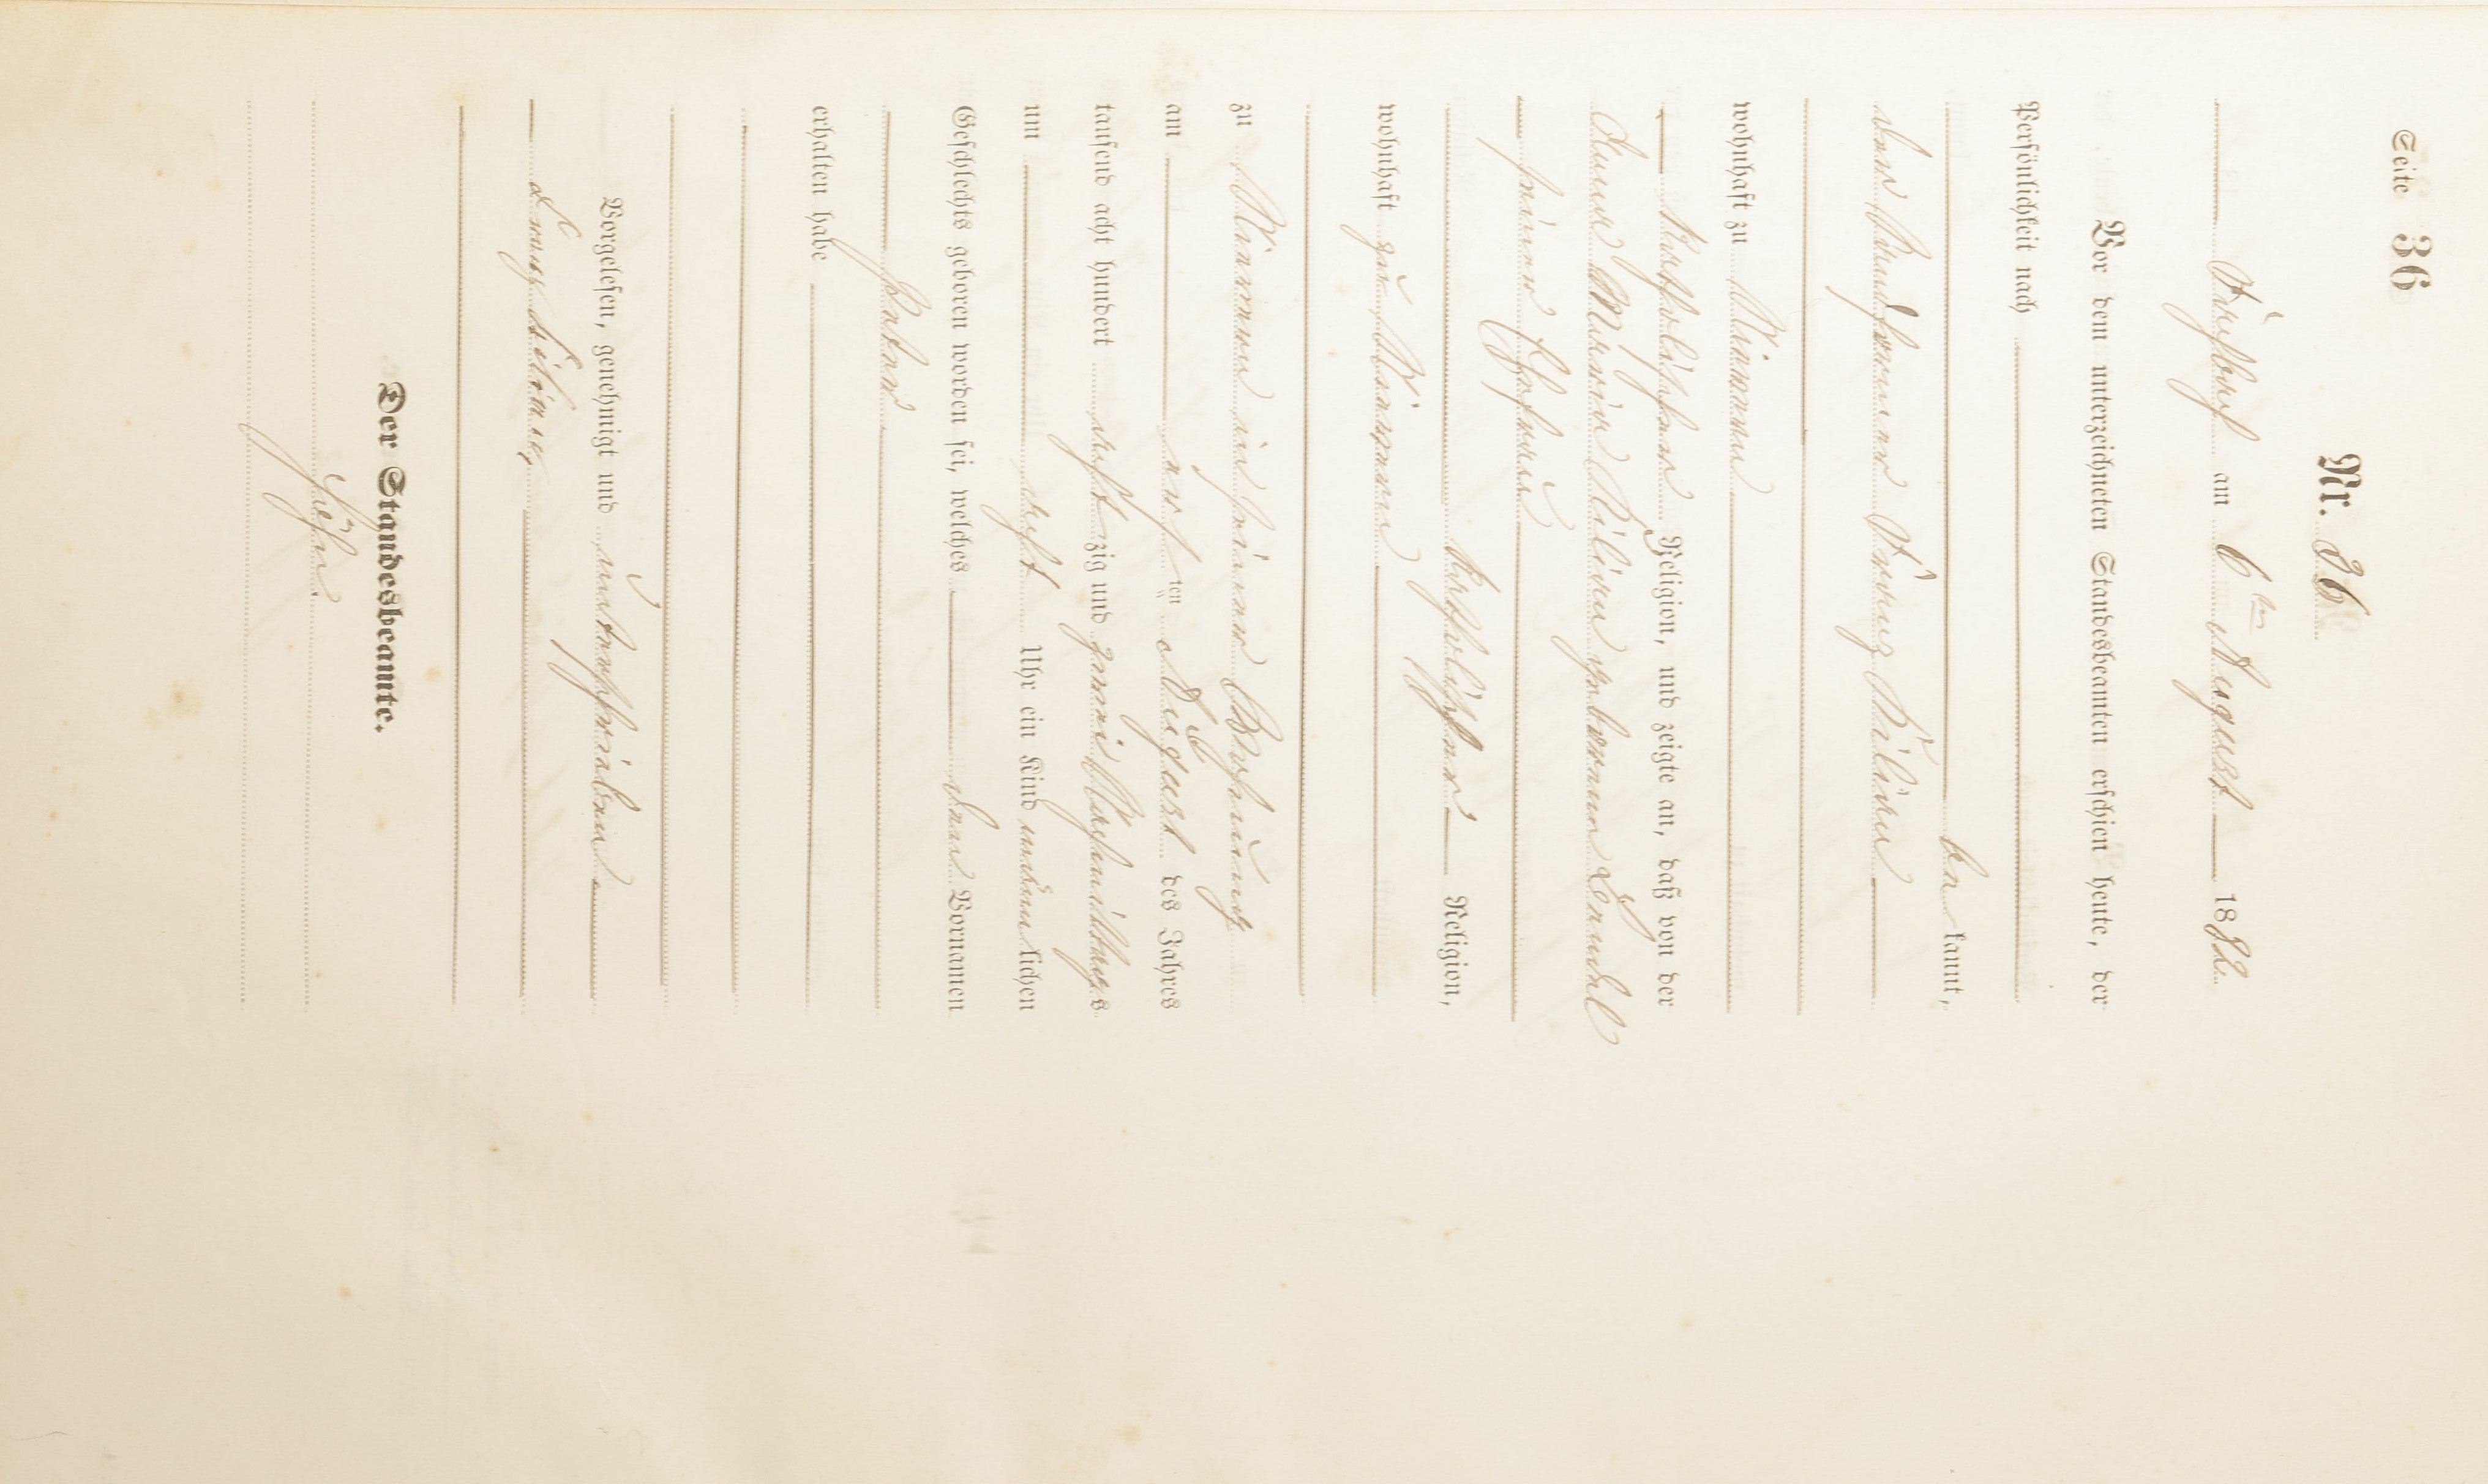 Seite 36
Nr. 36
am 6ten August 1882.
Vor dem unterzeichneten Standesbeamten erschien heute, der
Persönlichkeit nach
be kannt,
der Franz Kilian
wohnhaft zu
katholischer Religion, und zeigte an, daß von der
Anna Maria Kilian geborenen
seiner Ehefrau
katholischer Religion,
wohnhaft zu
zu in seiner Wohnung
am ten August des Jahres
tausend acht hundert acht zig und zwei Nachmittags
um acht Uhr ein Kind lichen
Geschlechts geboren worden sei, welches den Vornamen
Peter
erhalten habe
Vorgelesen, genehmigt und unterschrieben
Franz Kilian,
Der Standesbeamte.